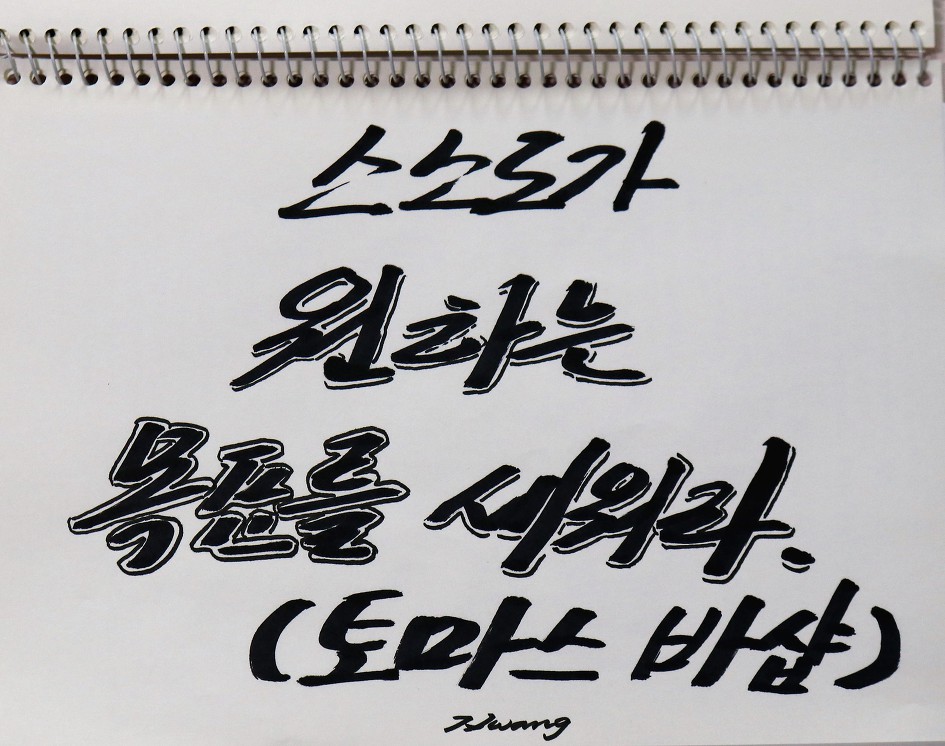 스스로가
원하는
목표를 세워라.
(토마스 바샵)